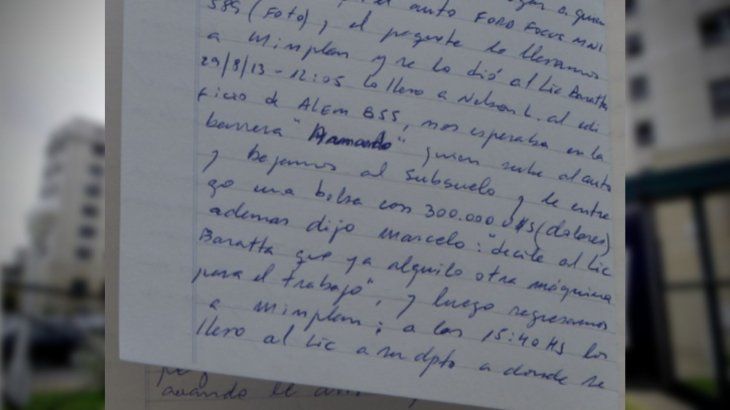 a quien
589 (FOTO), el auto FORD FOCUS MNI
a Minplan y se lo dió al Lic Baratta
29/8/13 - 12:05 lo llevo a Nelson L. al edi
ficio de ALEM 855, nos esperaba en la
barrera "Armando" quien sube al auto
y bajamos al subsuelo y le entre
go una bolsa con 300.000 U$S (dolares)
ademas dijo Marcelo: "decile al Lic
Baratta que ya alquilo otra máquina
para el trabajo", y luego regresamos
a Minplan; a las 15:40 Hs los
llevo al Lic a su dpto a donde se
cuando le